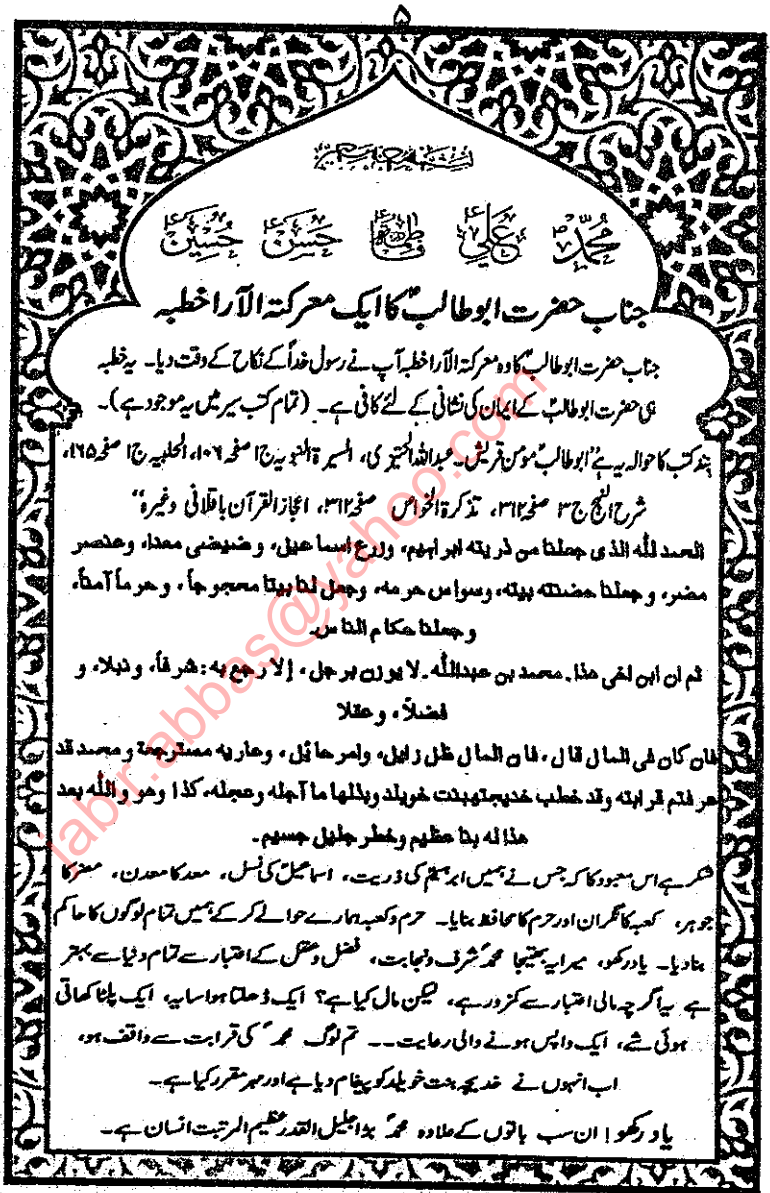 ۵
بسم اللہ الرحمن الرحیم
محمدؐ علیؑ فاطمہؑ حسنؑ حسینؑ
جناب حضرت ابوطالبؑ کا ایک معرکتہ الآرا خطبہ
جناب حضرت ابوطالبؑ کا وہ معرکتہ الآرا خطبہ آپ نے رسول خداؐ کے نکاح کے وقت دیا۔ یہ خطبہ
ہی حضرت ابوطالبؑ کے ایمان کی نشانی کے لئے کافی ہے۔ (تمام کتب سیر میں یہ موجود ہے)۔
چند کتب کا حوالہ یہ ہے "ابوطالبؑ مومن قریش۔ عبداللہ الخنیزی، السیرۃ النبویہ ج۱ صفحہ ۱۰۶، الحلبیہ ج۱ صفحہ ۱۶۵،
شرح النہج ج ۳ صفحہ ۳۱۲، تذکرۃ الخواص صفحہ ۳۱۲، اعجاز القرآن باقلانی وغیرہ"
الحمد للّٰہ الذی جعلنا من ذریتہ ابراہیم، وزرع اسماعیل، وضیضی معدا، وعنصر
مضر، وجعلنا حضنتہ بیتہ، وسواس حرمہ، وجعل لنا بیتا محجوجاً، وحرماً آمناً،
وجعلنا حکام الناس۔
ثم ان ابن اخی ھذا۔ محمد بن عبداللّٰہ۔ لا یوزن برجل، إلا رجع بہ: شرفاً، ونبلا، و
فضلاً، وعقلا
فان کان فی المال قال، فان المال ظل زایل، وامر حائل، وعاریہ مسترجعۃ ومحمد قد
عرفتم قرابتہ وقد خطب خدیجتہ بنت خویلد وبذلها ما آجلہ وعجلہ، کذا وھو واللّٰہ بعد
ھذا لہ بنا عظیم وخطر جلیل جسیم۔
شکر ہے اس معبود کا کہ جس نے ہمیں ابرہیمؑ کی ذریت، اسماعیلؑ کی نسل، معد کا معدن، مضر کا
جوہر، کعبہ کا نگران اور حرم کا محافظ بنایا۔ حرم و کعبہ ہمارے حوالے کر کے ہمیں تمام لوگوں کا حاکم
بنا دیا۔ یاد رکھو، میرا یہ بھتیجا محمدؐ شرف و نجابت، فضل و عقل کے اعتبار سے تمام دنیا سے بہتر
ہے یہ اگرچہ مالی اعتبار سے کمزور ہے، لیکن مال کیا ہے؟ ایک ڈھلتا ہوا سایہ، ایک پلٹا کھاتی
ہوئی شے، ایک واپس ہونے والی رعایت۔۔ تم لوگ محمدؐ کی قرابت سے واقف ہو،
اب انہوں نے خدیجہ بنت خویلد کو پیغام دیا ہے اور مہر مقرر کیا ہے۔
یاد رکھو! ان سب باتوں کے علاوہ محمدؐ بڑا جلیل القدر عظیم المرتبت انسان ہے۔
jabir.abbas@yahoo.com